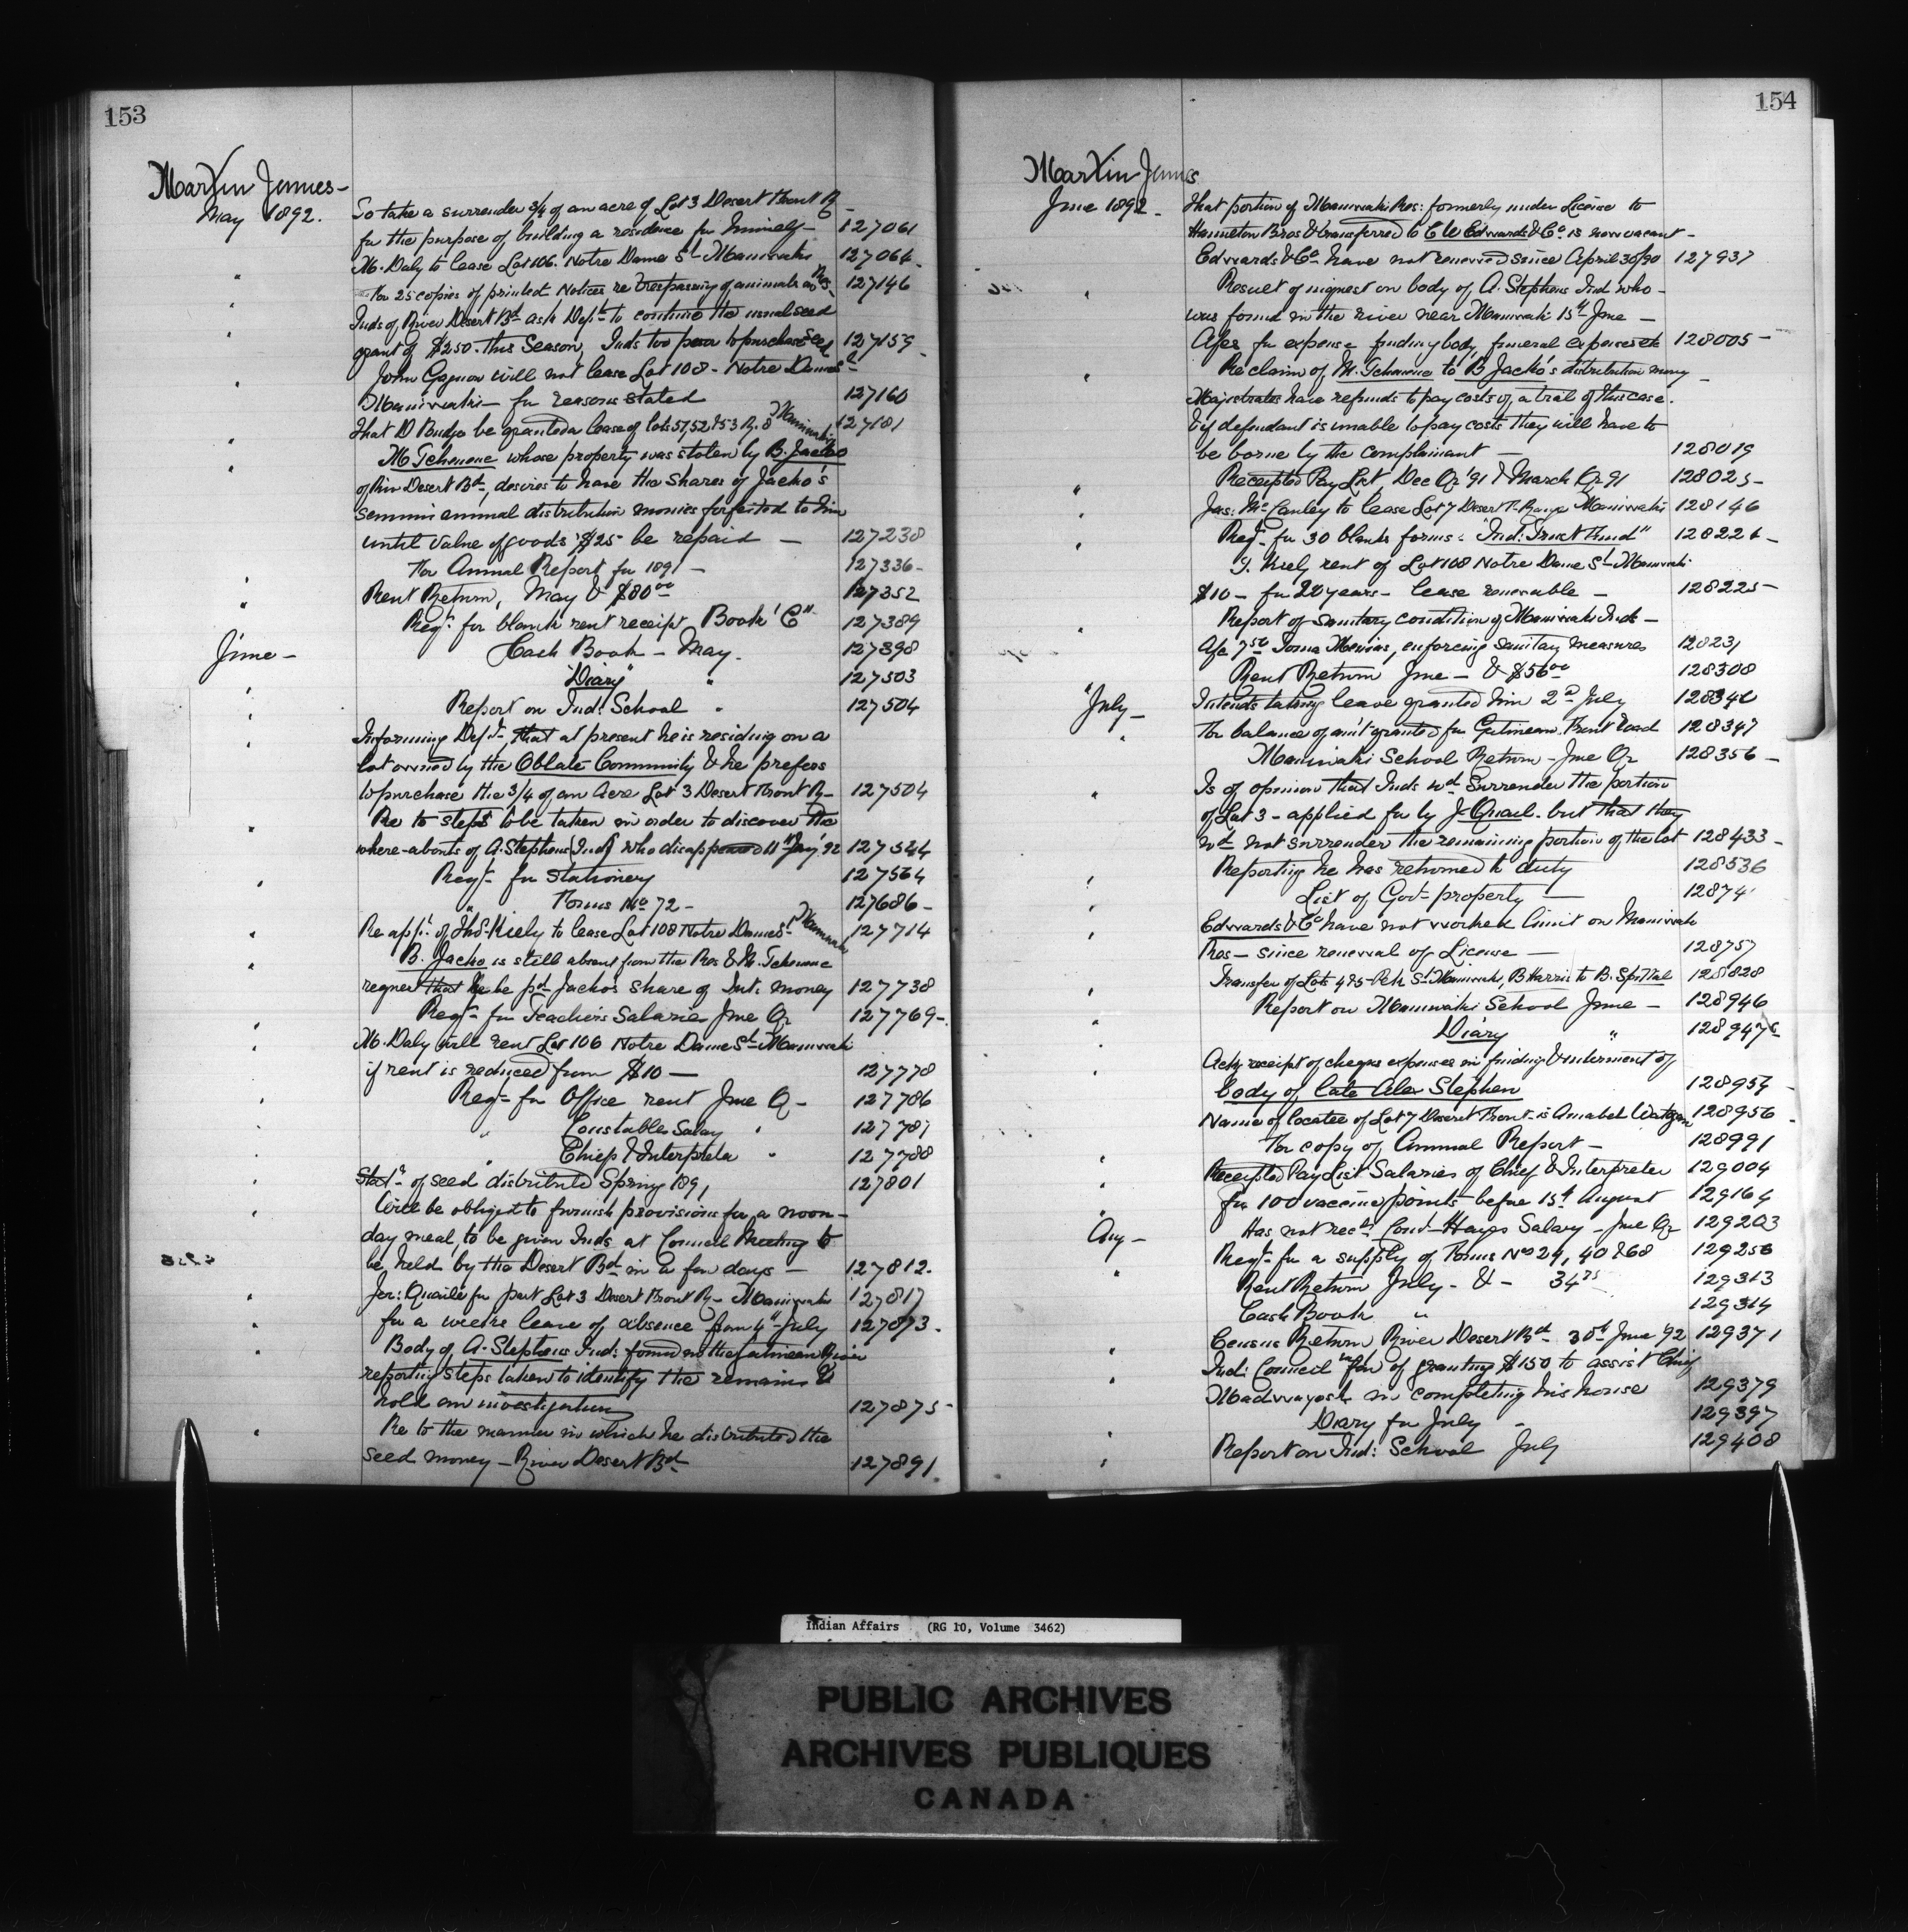 153
Martin James -
May 1892.
To take a surrender 3/4 of an acre of Lot 3 Desert Front R -
for the purpose of building a residence for himself - 127061
M. Daly to lease Lot 106. Notre Dame St Maniwaki 127064
For 25 copies of printed Notices re trespassing of animals on Res. 127146
Inds of River Desert Bd ask Dept to continue the usual seed
grant of $250 - this Season, Inds too poor to purchase seed 127159
John Gagnon will not lease Lot 108 - Notre Dame St
Maniwaki - for reasons stated 127160
That D Budge be granted a lease of lots 51 52 & 53 R. 8 Maniwaki 127181
M. Tchenene whose property was stolen by B. Jacko
of Riv Desert Bd, desires to have the shares of Jacko's
semmi annual distribution monies forfeited to him
until value of goods $25 - be repaid - 127238
For Annual Report for 1891 - 127336 -
Rent Return, May & $80 00 127352
Reqn for blank rent receipt Book "C" 127389
June -
Cash Book - May. 127398
Diary " 127503
Report on Ind: School " 127504
Informing Dept, that at present he is residing on a
lot owned by the Oblate Community & he prefers
to purchase the 3/4 of an Acre Lot 3 Desert Front R - 127504
Re to steps to be taken in order to discover the
where-abouts of A. Stephens (Ind) who disappeared 11th Jan'y '92 127544
Reqn for stationery 127564
" Forms No 72 - 127686 -
Re appn of Thos. Kiely to lease Lot 108 Notre Dame St Maniwaki 127714
B. Jacko is still absent from the Res & M. Tchenene
reques that he be pd Jacko's share of Int. money 127738
Reqn for Teachers Salarie June Qr 127769 -
M. Daly will rent Lot 106 Notre Dame St Maniwaki
if rent is reduced from $10 - 127778
Reqn for Office rent June Q - 127786
" Constables Salary " 127787
" Chief & Interpreter " 127788
Statn of seed distributed Spring 1891 127801
Will be obliged to furnish provisions for a noon -
day meal, to be given Inds at Council Meeting to
be held by the Desert Bd in a few days - 127812.
Jer: Quaile for part Lot 3 Desert Front R - Maniwaki 127817
for a weeks leave of absence from 4th July 127873.
Body of A. Stephens Ind: found in the Gatineau River
reporting steps taken to identify the remains &
hold an investigation 127875 -
Re to the manner in which he distributed the
seed money - River Desert Bd 127891
154
Martin James
June 1892 -
That portion of Maniwaki Res: formerly under License to
Hamilton Bros & transferred to C W Edwards & Co is now vacant -
Edwards & Co have not renewed since April 30/90 127937
Result of inquest on body of A. Stephens Ind who -
was found in the river near Maniwaki 15th June -
A/cs for expense finding body, funeral expenses etc 128005 -
Re claim of M. Tchenene to B Jacko's distribution money -
Majistrates have refused to pay costs of a trial of this case.
& if defendant is unable to pay costs they will have to
be borne by the complainant - 128019
Receipted Pay List, Dec Qr '91 & March Qr 91 128025 -
Jas: McCauley to lease Lot 7 Desert Ft Range Maniwaki 128146
Reqn for 30 blank forms: "Ind: Trust Fund" 128221 -
T. Kiely rent of Lot 108 Notre Dame St Maniwaki
$10 - for 20 years - lease renewable - 128225 -
Report of sanitary condition of Maniwaki Inds -
A/c 7 50 enforcing sanitary measures 128231
Rent Return June - & $56 00 128308
July -
Intends taking leave granted him 2d July 128340
For balance of am't granted for Gatineau Front road 128347
Maniwaki School Return - June Qr 128356 -
Is of opinion that Inds wd Surrender the portion
of Lot 3 - applied for by J. Quail. but that they
wd not surrender the remaining portion of the lot 128433 -
Reporting he has returned to duty 128536
List of Govt property - 12874
Edwards & Co have not worked limit on Maniwaki
Res - since renewal of License - 128757
Transfer of Lots 4 & 5 - St Maniwaki, B Harris to B. Spittal 128828
Report on Maniwaki School June - 128946
Diary " 128947
Ackg receipt of cheque expenses in finding & interment of
body of late Alex Stephen 128954 -
Name of locatee of Lot 7 Desert Front - is Amabel Watagon 128956 -
For copy of Annual Report - 128991
Receipted Pay List Salaries of Chief & Interpreter 129004
for 100 vaccine points before 15th August 129164
Aug -
Has not recd: Cond Hayes Salary - June Qr 129203
Reqn for a supply of Forms Nos 24, 40 & 68 129256
Rent Return July - & - 34 75 129313
Cash Book " 129314
Census Return River Desert Bd 30th June '92 129371
Ind: Council in fav of granting $150 to assist Chief
in completing his house 129379
Diary for July - 129397
Report on Ind: School July 129408
Indian Affairs (RG 10, Volume 3462)
PUBLIC ARCHIVES
ARCHIVES PUBLIQUES
CANADA